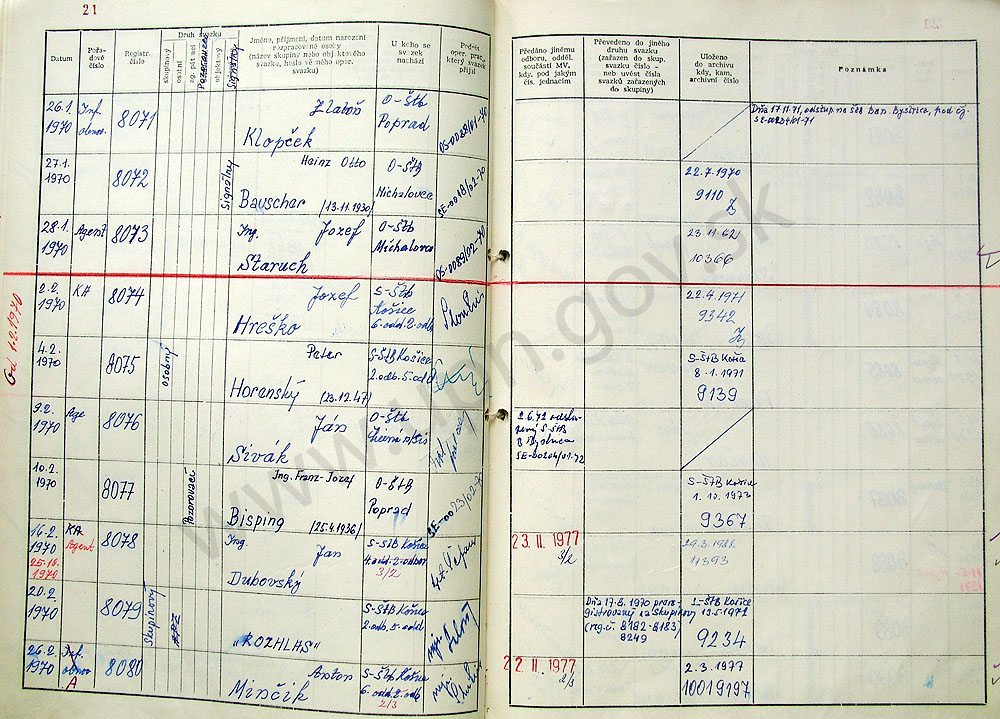 21
Datum
Pořadové číslo
Registr. číslo
Druh svazku
skupinový
osobní
objektový
Jméno, příjmení, datum narození
rozpracované osoby
(název skupiny nebo obj.ktového
svazku, heslo vě ného oper.
svazku)
U koho se
svazek
nachází
Podpis
oper. prac.,
který svazek
přijal
Předáno jinému
odboru, odděl.
součásti MV,
kdy, pod jakým
čís. jednacím
Převedeno do jiného
druhu svazku
(zařazen do skup.
svazku číslo -
neb uvést čísla
svazků zařazených
do skupiny)
Uloženo
do archivu
kdy, kam,
archivní číslo
Poznámka
26.1. 1970
8071
Zlatoň
Klopček
O-Štb
Poprad
OS-0088/01-70
Dňa 17.11.71, odstup. na Štb Ban. Bystrica, pod čj.
SE-00204/01-71
27.1. 1970
8072
Signálny
Hainz Otto
Bauscher (13.11.1930)
O-Štb
Michalovce
SE-0018/02-70
22.7.1970
9110
28.1. 1970
Agent
8073
Ing. Jozef
Staruch
O-Štb
Michalovce
OS-0089/02-70
10366
Od 1.2.1970
2.2. 1970
KA
8074
Jozef
Hreško
S-Štb
Košice
6.odd.2.odb
22.4.1971
9342
4.2. 1970
8075
osobný
Peter
Horanský (23.12.47)
S-ŠtB Košice
2.odb.5.odd
S-ŠtB Košice
8.1.1971
9139
9.2. 1970
Age
8076
Ján
Sivák
O-Štb
2.6.72 odstu-
pený S-ŠtB
B Bystrica
SE-00204/01-72
10.2. 1970
8077
Pozorovací
Ing. Franz-Jozef
Bisping (25.4.1936)
O-ŠtB
Poprad
SE-0023/02-70
S-ŠtB Košice
1.10.1973
9367
16.2. 1970
KA
Agent
25.10. 1970
8078
Ing. Jan
Dubovský
S-StB Košice
4.odd.2-odbor
3/2
23. II. 1977
3/2
11393
20.2. 1970
8079
Skupinový
„ROZHLAS"
S-StB Košice
2.odb.5.odd
Dňa 17.8.1970 prere-
gistrovaný na Skupinový
(reg.č. 8182-8183)
8249
S-ŠtB Košice
9234
26.2. 1970
A
8080
Anton
Minčik
S-ŠtB Košice
6.odd.2.odb
2/3
22. II. 1977
2/3
2.3.1977
10019197
www.upn.gov.sk